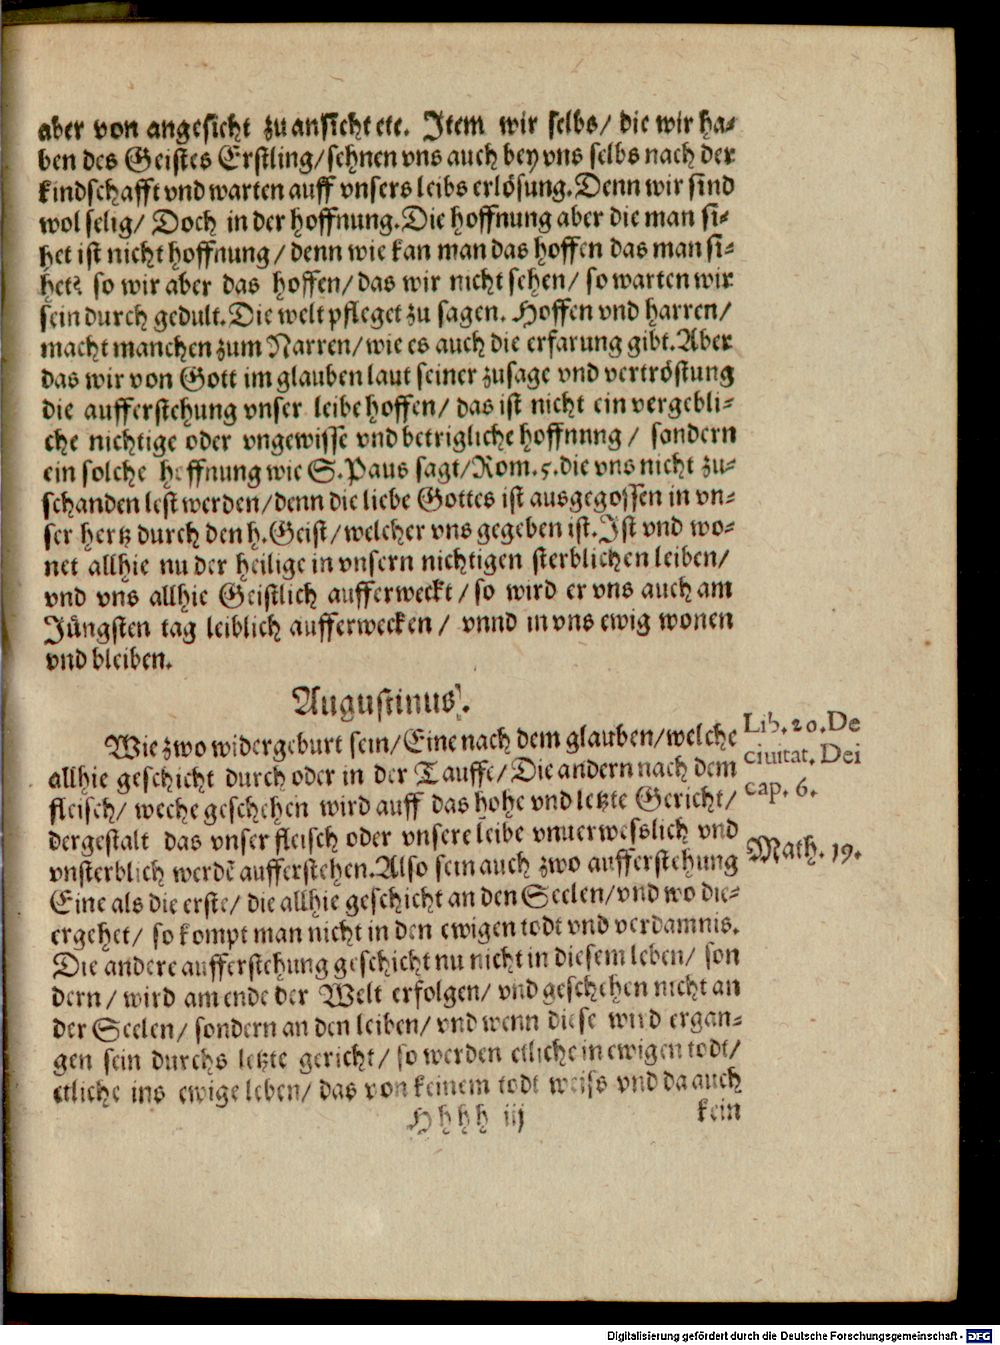 aber von angesicht zu ansicht etc. Item wir selbs/ die wir ha-
ben des Geistes Erstling/ sehnen vns auch bey vns selbs nach der
kindschafft vnd warten auff vnsers leibs erlösung. Denn wir sind
wol selig/ Doch in der hoffnung. Die hoffnung aber die man si-
het ist nicht hoffnung/ denn wie kan man das hoffen das man si-
het? so wir aber das hoffen/ das wir nicht sehen/ so warten wir
sein durch gedult. Die welt pfleget zu sagen. Hoffen vnd harren/
macht manchen zum Narren/ wie es auch die erfarung gibt. Aber
das wir von Gott im glauben laut seiner zusage vnd vertröstung
die aufferstehung vnser leibe hoffen/ das ist nicht ein vergebli-
che nichtige oder vngewisse vnd betrigliche hoffnnng/ sondern
ein solche hoffnung wie S. Paus sagt/ Rom. 5. die vns nicht zu-
schanden lest werden/ denn die liebe Gottes ist ausgegossen in vn-
ser hertz durch den h. Geist/ welcher vns gegeben ist. Ist vnd wo-
net allhie nu der heilige in vnsern nichtigen sterblichen leiben/
vnd vns allhie Geistlich aufferweckt/ so wird er vns auch am
Jüngsten tag leiblich aufferwecken/ vnnd in vns ewig wonen
vnd bleiben.
Augustinus.
Wie zwo widergeburt sein/ Eine nach dem glauben/ welche
allhie geschicht durch oder in der Tauffe/ Die andern nach dem
fleisch/ weche geschehen wird auff das hohe vnd letzte Gericht/
dergestalt das vnser fleisch oder vnsere leibe vnuerwesslich vnd
vnsterblich werdẽ aufferstehen. Also sein auch zwo aufferstehung
Eine als die erste/ die allhie geschicht an den Seelen/ vnd wo die-
ergehet/ so kompt man nicht in den ewigen todt vnd verdamnis.
Die andere aufferstehung geschicht nu nicht in diesem leben/ son
dern/ wird am ende der Welt erfolgen/ vnd geschehen nicht an
der Seelen/ sondern an den leiben/ vnd wenn diese wird ergan-
gen sein durchs letzte gericht/ so werden etliche in ewigen todt/
etliche ins ewige leben/ das von keinem todt weiss vnd da auch
Hhhh iij
kein
Lib. 20. De
ciuitat. Dei
cap. 6.
Math. 19.
Digitalisierung gefördert durch die Deutsche Forschungsgemeinschaft - DFG